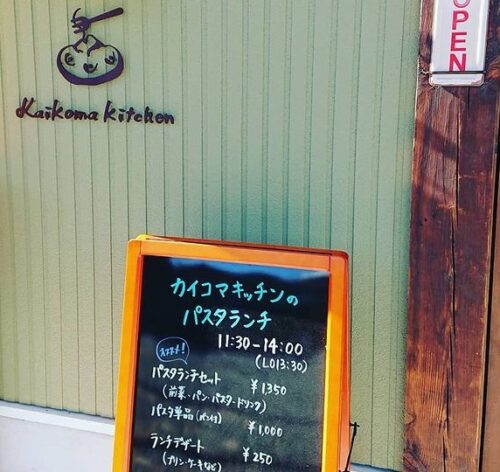 OPEN
Kaikoma kitchen
カイコマキッチンの
パスタランチ
11:30-14:00
(LO13:30)
オススメ!
パスタランチセット ¥1,350
(前菜・パン・パスタ・ドリンク)
パスタ単品(パン付) ¥1,000
ランチデザート ¥250
(プリン・ケーキなど)